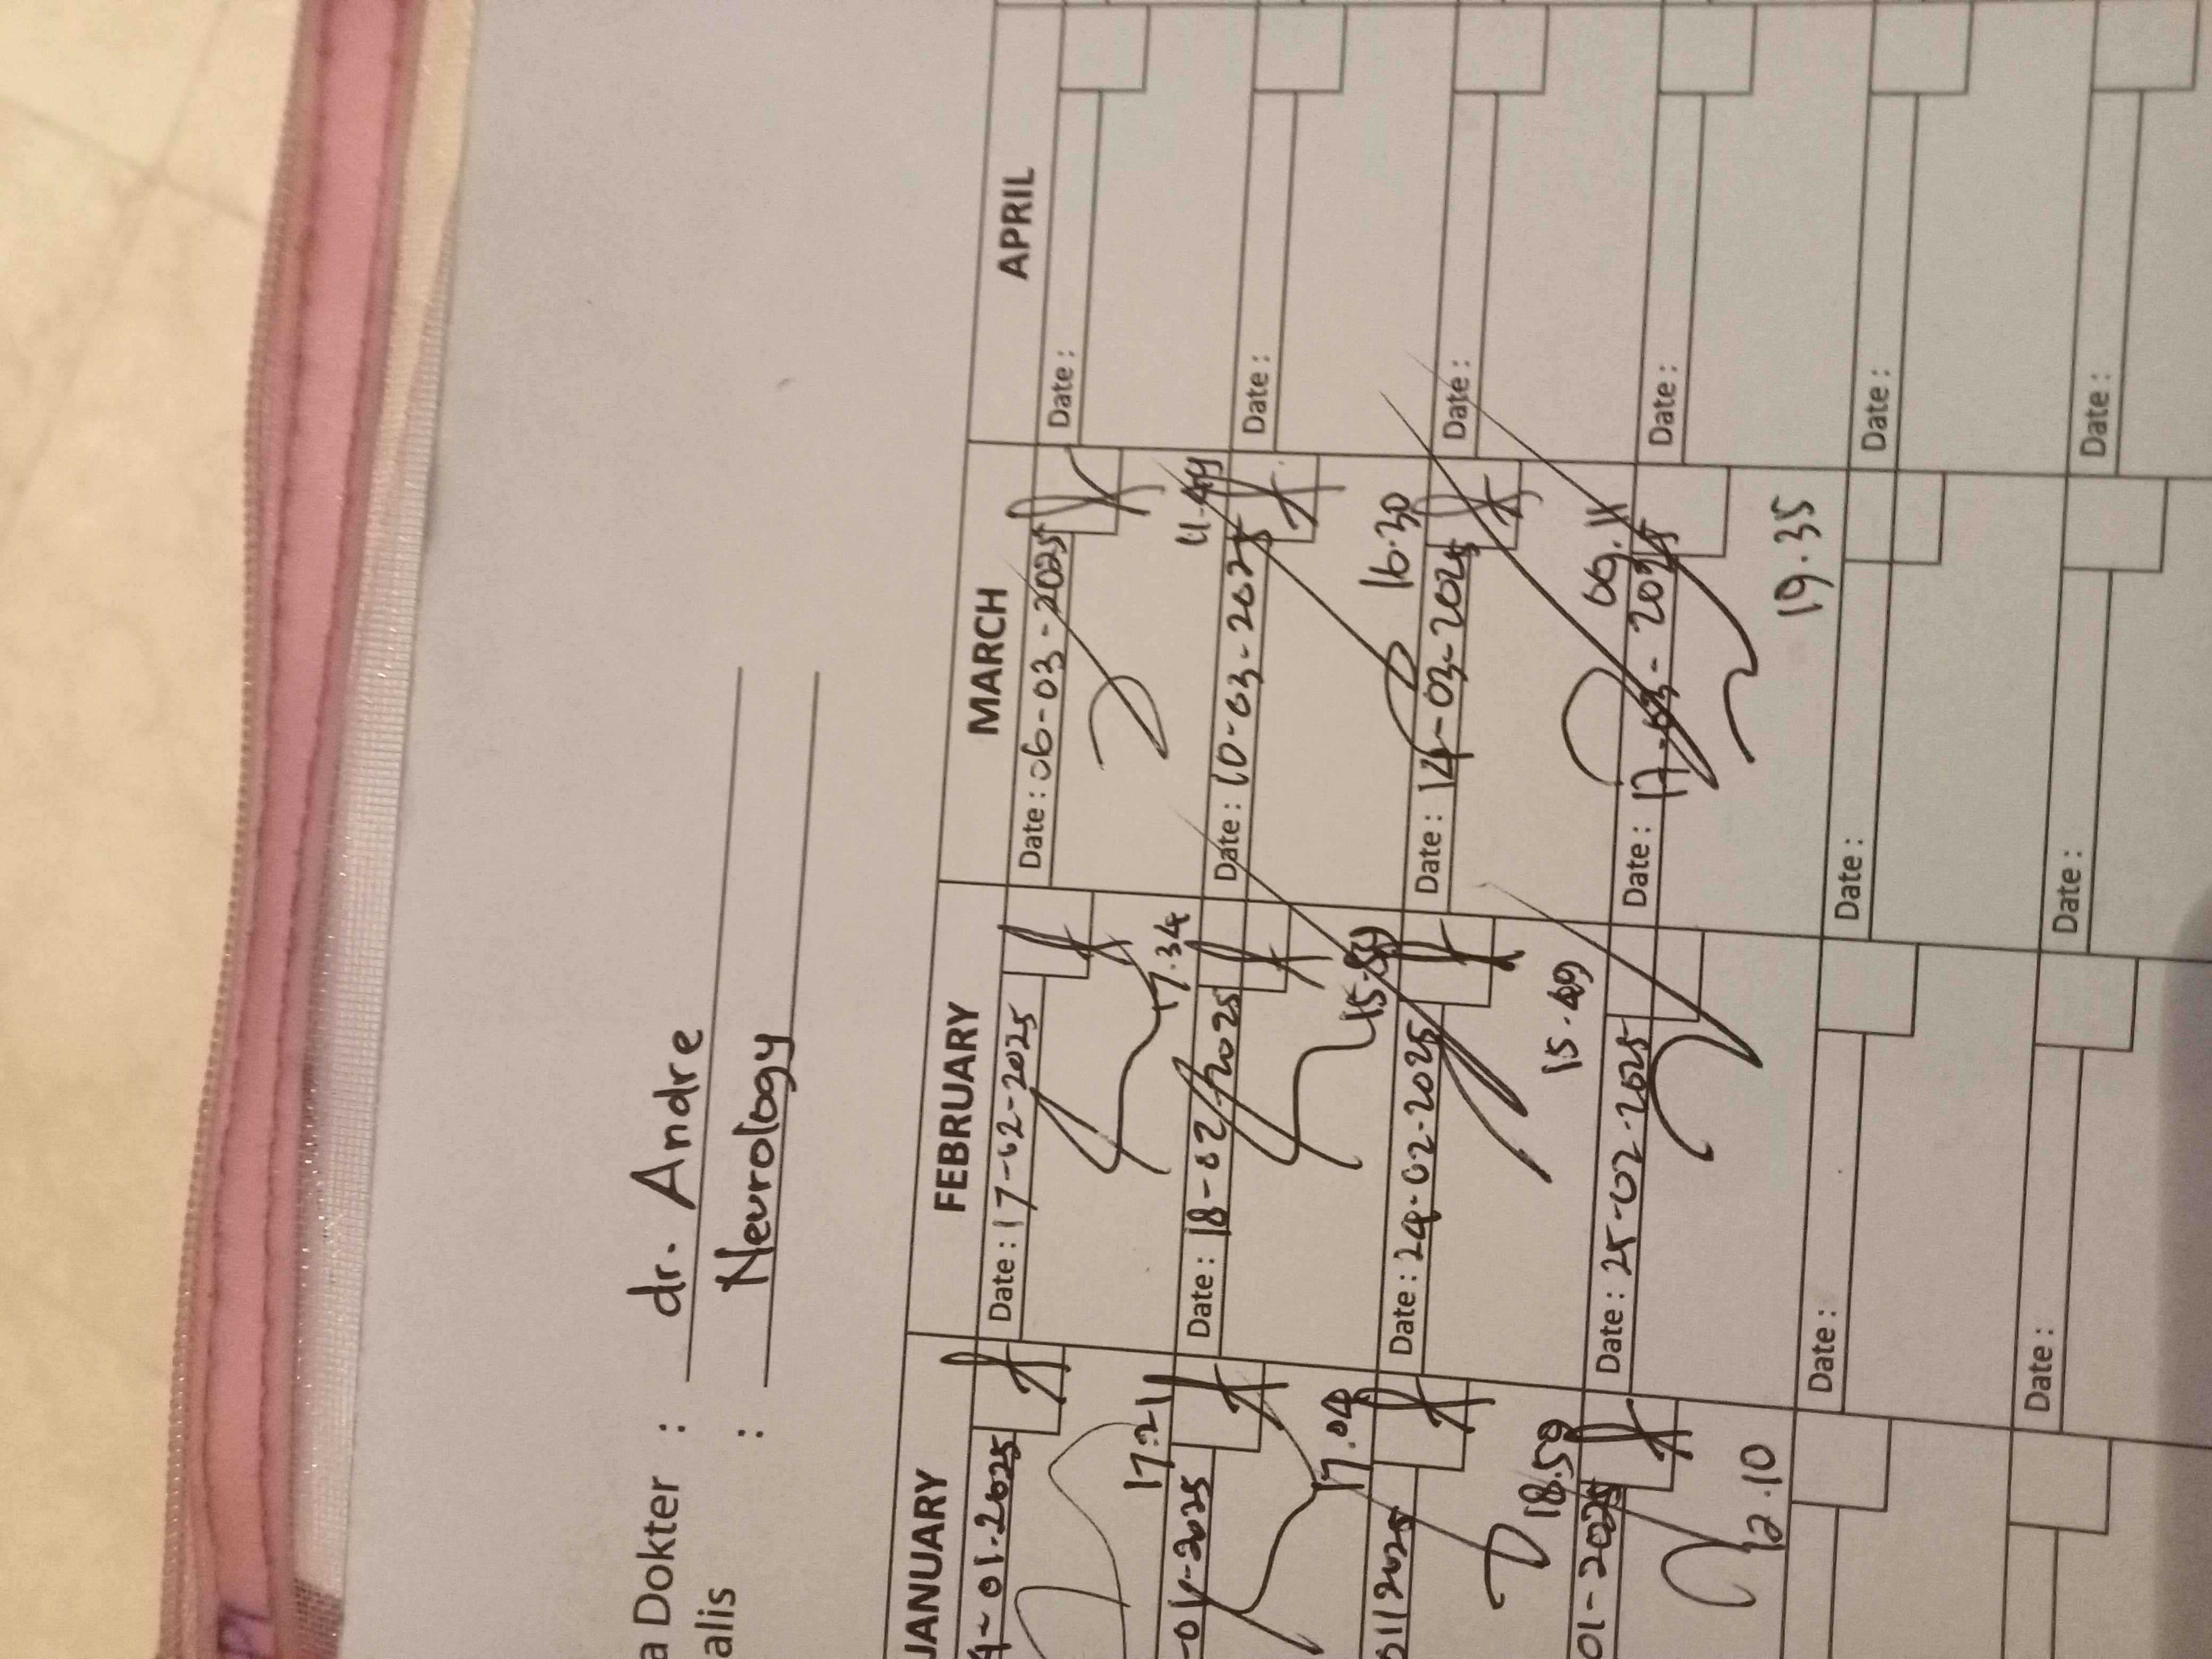 a Dokter : dr. Andre
alis : Neurology
JANUARY FEBRUARY MARCH APRIL
01.2025 Date : 17-02-2025 Date : 06-03-2025 Date :
17.21 17.34 11.49
-01-2025 Date : 18-02-2025 Date : 10-03-2025 Date :
17.04 16.30
Date : 24-02-2025 Date : 14-03-2025 Date :
18.59 15.49
01-2025 Date : 25-02-2025 Date : 17-03-2025 Date :
12.10 19.35
Date : Date : Date :
Date : Date : Date :